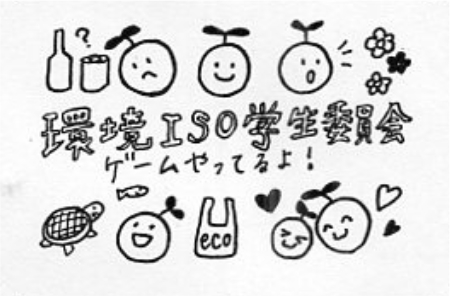 ?
環境ISO学生委員会
ゲームやってるよ!
eco